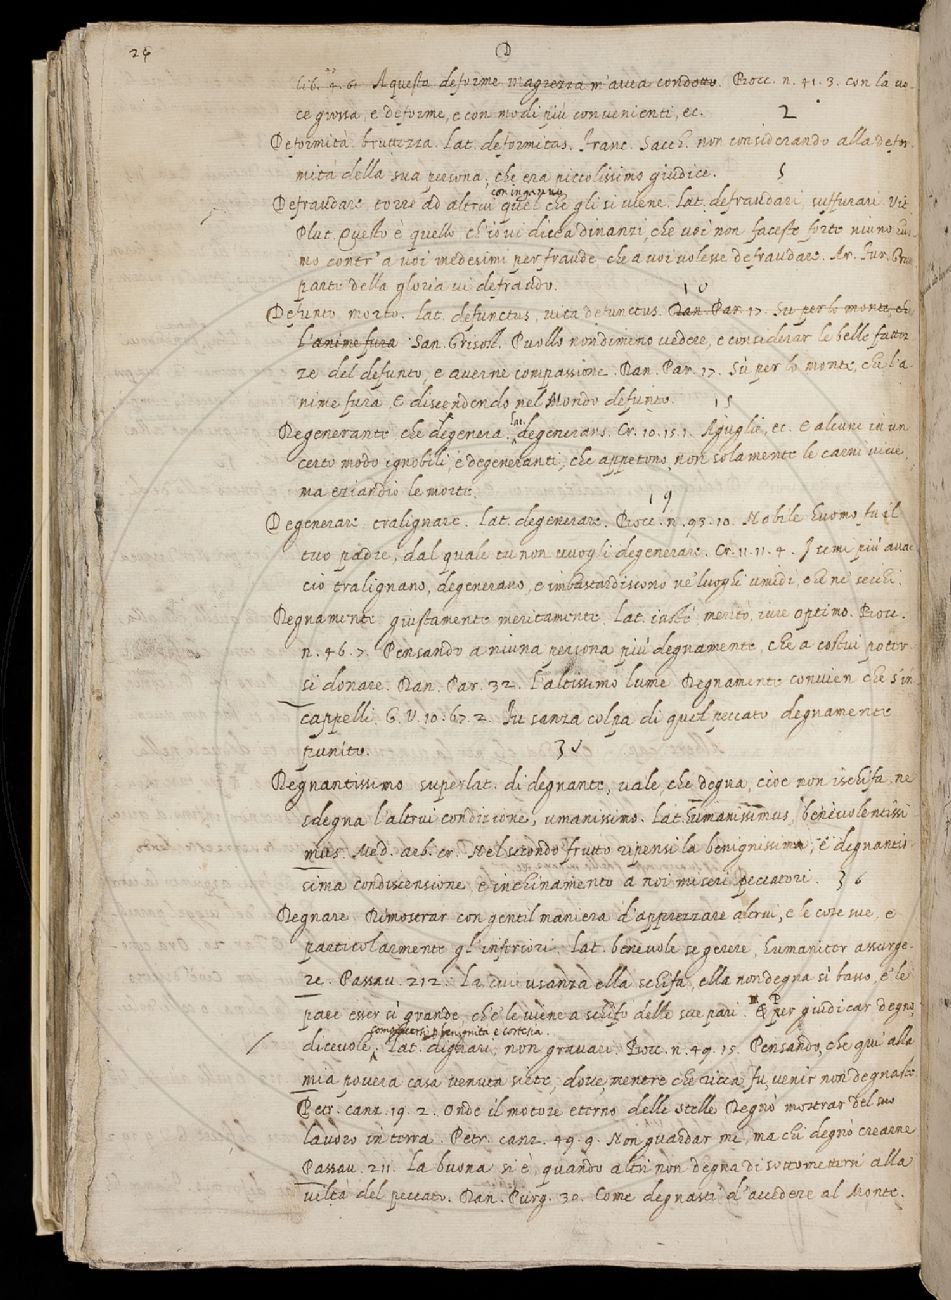 24
D
lib. 4. 6. A questo deforme magrezza m'avea condotto. Bocc. n. 41. 3. con la vo-
ce grossa, e deforme, e con modi più convenienti, ec. 2
Deformità. bruttezza. Lat. deformitas. Franc. Sacch. non considerando alla defor-
mità della sua persona, che era piccolissimo giudice. 5
con inganno
Defraudare, torre ad altrui quel che gli si viene. Lat. defraudari, suffurari. Vit.
Plut. Questo è quello ch'io vi dicea dinanzi, che voi non faceste forte niuno huo-
mo contr' a voi medesimi per fraude, che a voi volesse defraudare. Ar. Fur. Gran
parte della gloria vi defraudo.
10
Defunto, morto. Lat. defunctus, vita defunctus. Dan. Par. 17. Su per lo monte, che
l'anime fura San. Grisost. Puollo nondimeno vedere, e considerar le belle fattez-
ze del defunto, e averne compassione. Dan. Par. 17. Sù per lo monte, che l'a-
nime cura, E discendendo nel Mondo defunto. 15
Degenerante che degenera. Lat. degenerans. Cr. 10. 15. 1. Aguglie, ec. e alcune in un
certo modo ignobili, e degeneranti, che appetono, non solamente le carni vive,
ma eziandio le morte. 19
Degenerare tralignare. Lat. degenerare. Bocc. n. 93. 10. Nobile huomo fu il
tuo padre, dal quale tu non vuogli degenerare. Cr. 11. 11. 4. I semi più avac-
cio tralignano, degenerano, e imbastardiscono ne' luoghi umidi, che ne' secchi.
Degnamente giustamente meritamente. Lat. iuste, merito, iure optimo. Bocc.
n. 46. 7. Pensando a niuna persona più degnamente, che a costui poter-
si donare. Dan. Par. 32. L'altissimo lume Degnamente convien che s'in-
cappelli. G. V. 10. 67. 2. Fu sanza colpa di quel peccato degnamente
punito.
Degnantissimo superlat. di degnante, vale, che degna, cioè non ischifa, ne
sdegna l'altrui condizione, umanissimo. Lat. humanissimus, benevolentissi-
mus. Med. arb. cr. Nel secondo frutto ripensi la benignissima, e degnantis-
sima condiscensione, e inchinamento a noi miseri peccatori. 36
Degnare. Dimostrar con gentil maniera d'apprezzare altrui, e le cose sue, e
particolarmente gl'inferiori. Lat. benevole se gerere, humaniter assurge-
re. Passav. 212. La cui usanza ella schifa, ella non degna sì basso, e le
pare esser sì grande, che le viene a schifo delle sue pari. Per giudicar degno,
compiacersi per benignità e cortesia
dicevole. Lat. dignari, non gravari. Bocc. n. 49. 15. Pensando, che qui alla
mia povera casa venuta siete, dove, mentre che ricca fu, venir non degnaste
Petr. canz. 19. 2. Onde il motore eterno delle stelle Degnò mostrar del suo
lavoro in terra. Petr. canz. 49. 9. Non guardar me, ma chi degnò crearme
Passav. 211. La buona si è, quando altri non degna di sottomettersi alla
viltà del peccato. Dan. Purg. 30. Come degnasti d'accedere al Monte.